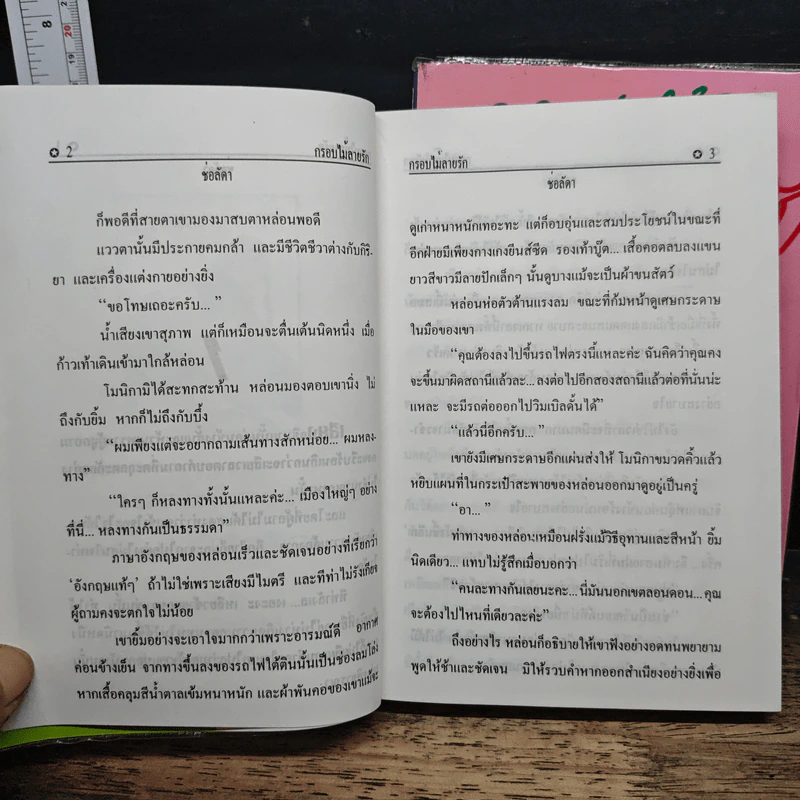 8
20
19
18
✪ 2 กรอบไม้ลายรัก
ช่อลัดา
ก็พอดีที่สายตาเขามองมาสบตาหล่อนพอดี
แววตานั้นมีประกายคมกล้า และมีชีวิตชีวาต่างกับกิริ-
ยา และเครื่องแต่งกายอย่างยิ่ง
“ขอโทษเถอะครับ... ”
น้ำเสียงเขาสุภาพ แต่ก็เหมือนจะตื่นเต้นนิดหนึ่ง เมื่อ
ก้าวเท้าเดินเข้ามาใกล้หล่อน
โมนิกามิได้สะทกสะท้าน หล่อนมองตอบเขานิ่ง ไม่
ถึงกับยิ้ม หากก็ไม่ถึงกับบึ้ง
“ผมเพียงแต่จะอยากถามเส้นทางสักหน่อย... ผมหลง-
ทาง”
“ใครๆ ก็หลงทางทั้งนั้นแหละค่ะ... เมืองใหญ่ๆ อย่าง
ที่นี่... หลงทางกันเป็นธรรมดา”
ภาษาอังกฤษของหล่อนเร็วและชัดเจนอย่างที่เรียกว่า
‘อังกฤษแท้ๆ’ ถ้าไม่ใช่เพราะเสียงมีไมตรี และทีท่าไม่รังเกียจ
ผู้ถามคงจะตกใจไม่น้อย
เขายิ้มอย่างจะเอาใจมากกว่าเพราะอารมณ์ดี อากาศ
ค่อนข้างเย็น จากทางขึ้นลงของรถไฟใต้ดินนั้นเป็นช่องลมโล่ง
หากเสื้อคลุมสีน้ำตาลเข้มหนาหนัก และผ้าพันคอของเขาแม้จะ
กรอบไม้ลายรัก ✪ 3
ช่อลัดา
ดูเก่าหนาหนักเทอะทะ แต่ก็อบอุ่นและสมประโยชน์ในขณะที่
อีกฝ่ายมีเพียงกางเกงยีนส์ซีด รองเท้าบู๊ต... เสื้อคอตลบลงแขน
ยาวสีขาวมีลายปักเล็กๆ นั้นดูบางแม้จะเป็นผ้าขนสัตว์
หล่อนห่อตัวต้านแรงลม ขณะที่ก้มหน้าดูเศษกระดาษ
ในมือของเขา
“คุณต้องลงไปขึ้นรถไฟตรงนี้แหละค่ะ ฉันคิดว่าคุณคง
จะขึ้นมาผิดสถานีแล้วละ... ลงต่อไปอีกสองสถานีแล้วต่อที่นั่นน่ะ
แหละ จะมีรถต่อออกไปวิมเบิลดั้นได้”
“แล้วนี่อีกครับ... ”
เขายังมีเศษกระดาษอีกแผ่นส่งให้ โมนิกาขมวดคิ้วแล้ว
หยิบแผนที่ในกระเป๋าสะพายของหล่อนออกมาดูอยู่เป็นครู่
“อา... ”
ท่าทางของหล่อนเหมือนฝรั่งแม้วิธีอุทานและสีหน้า ยิ้ม
นิดเดียว... แทบไม่รู้สึกเมื่อบอกว่า
“คนละทางกันเลยนะคะ... นี่มันนอกเขตลอนดอน... คุณ
จะต้องไปไหนที่เดียวละค่ะ”
ถึงอย่างไร หล่อนก็อธิบายให้เขาฟังอย่างอดทนพยายาม
พูดให้ช้าและชัดเจน มิให้รวบคำหากออกสำเนียงอย่างยิ่งเพื่อ